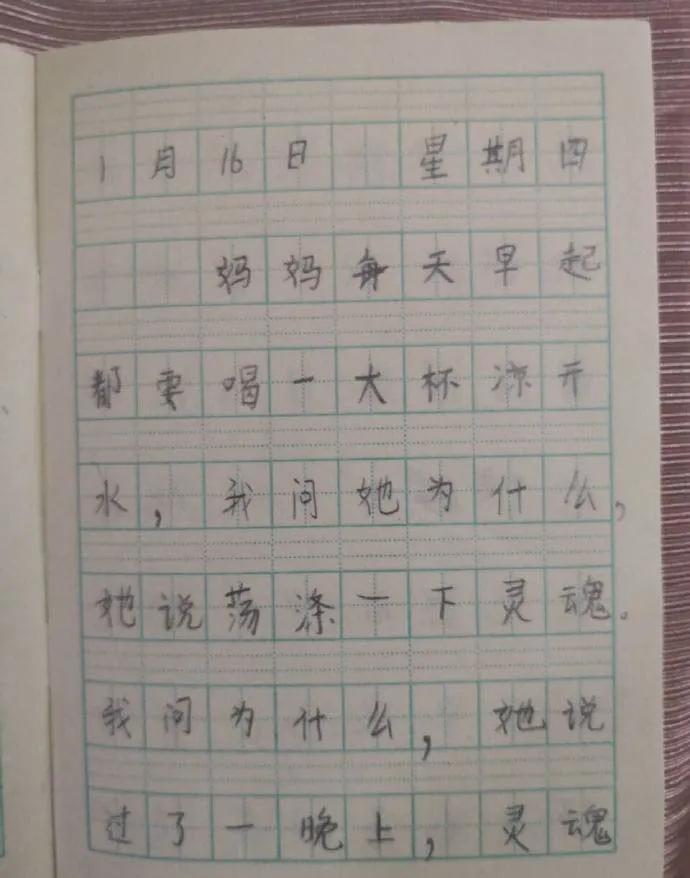 1月16日 星期四
妈妈每天早起
都要喝一大杯凉开
水，我问她为什么，
她说荡涤一下灵魂。
我问为什么，她说
过了一晚上，灵魂